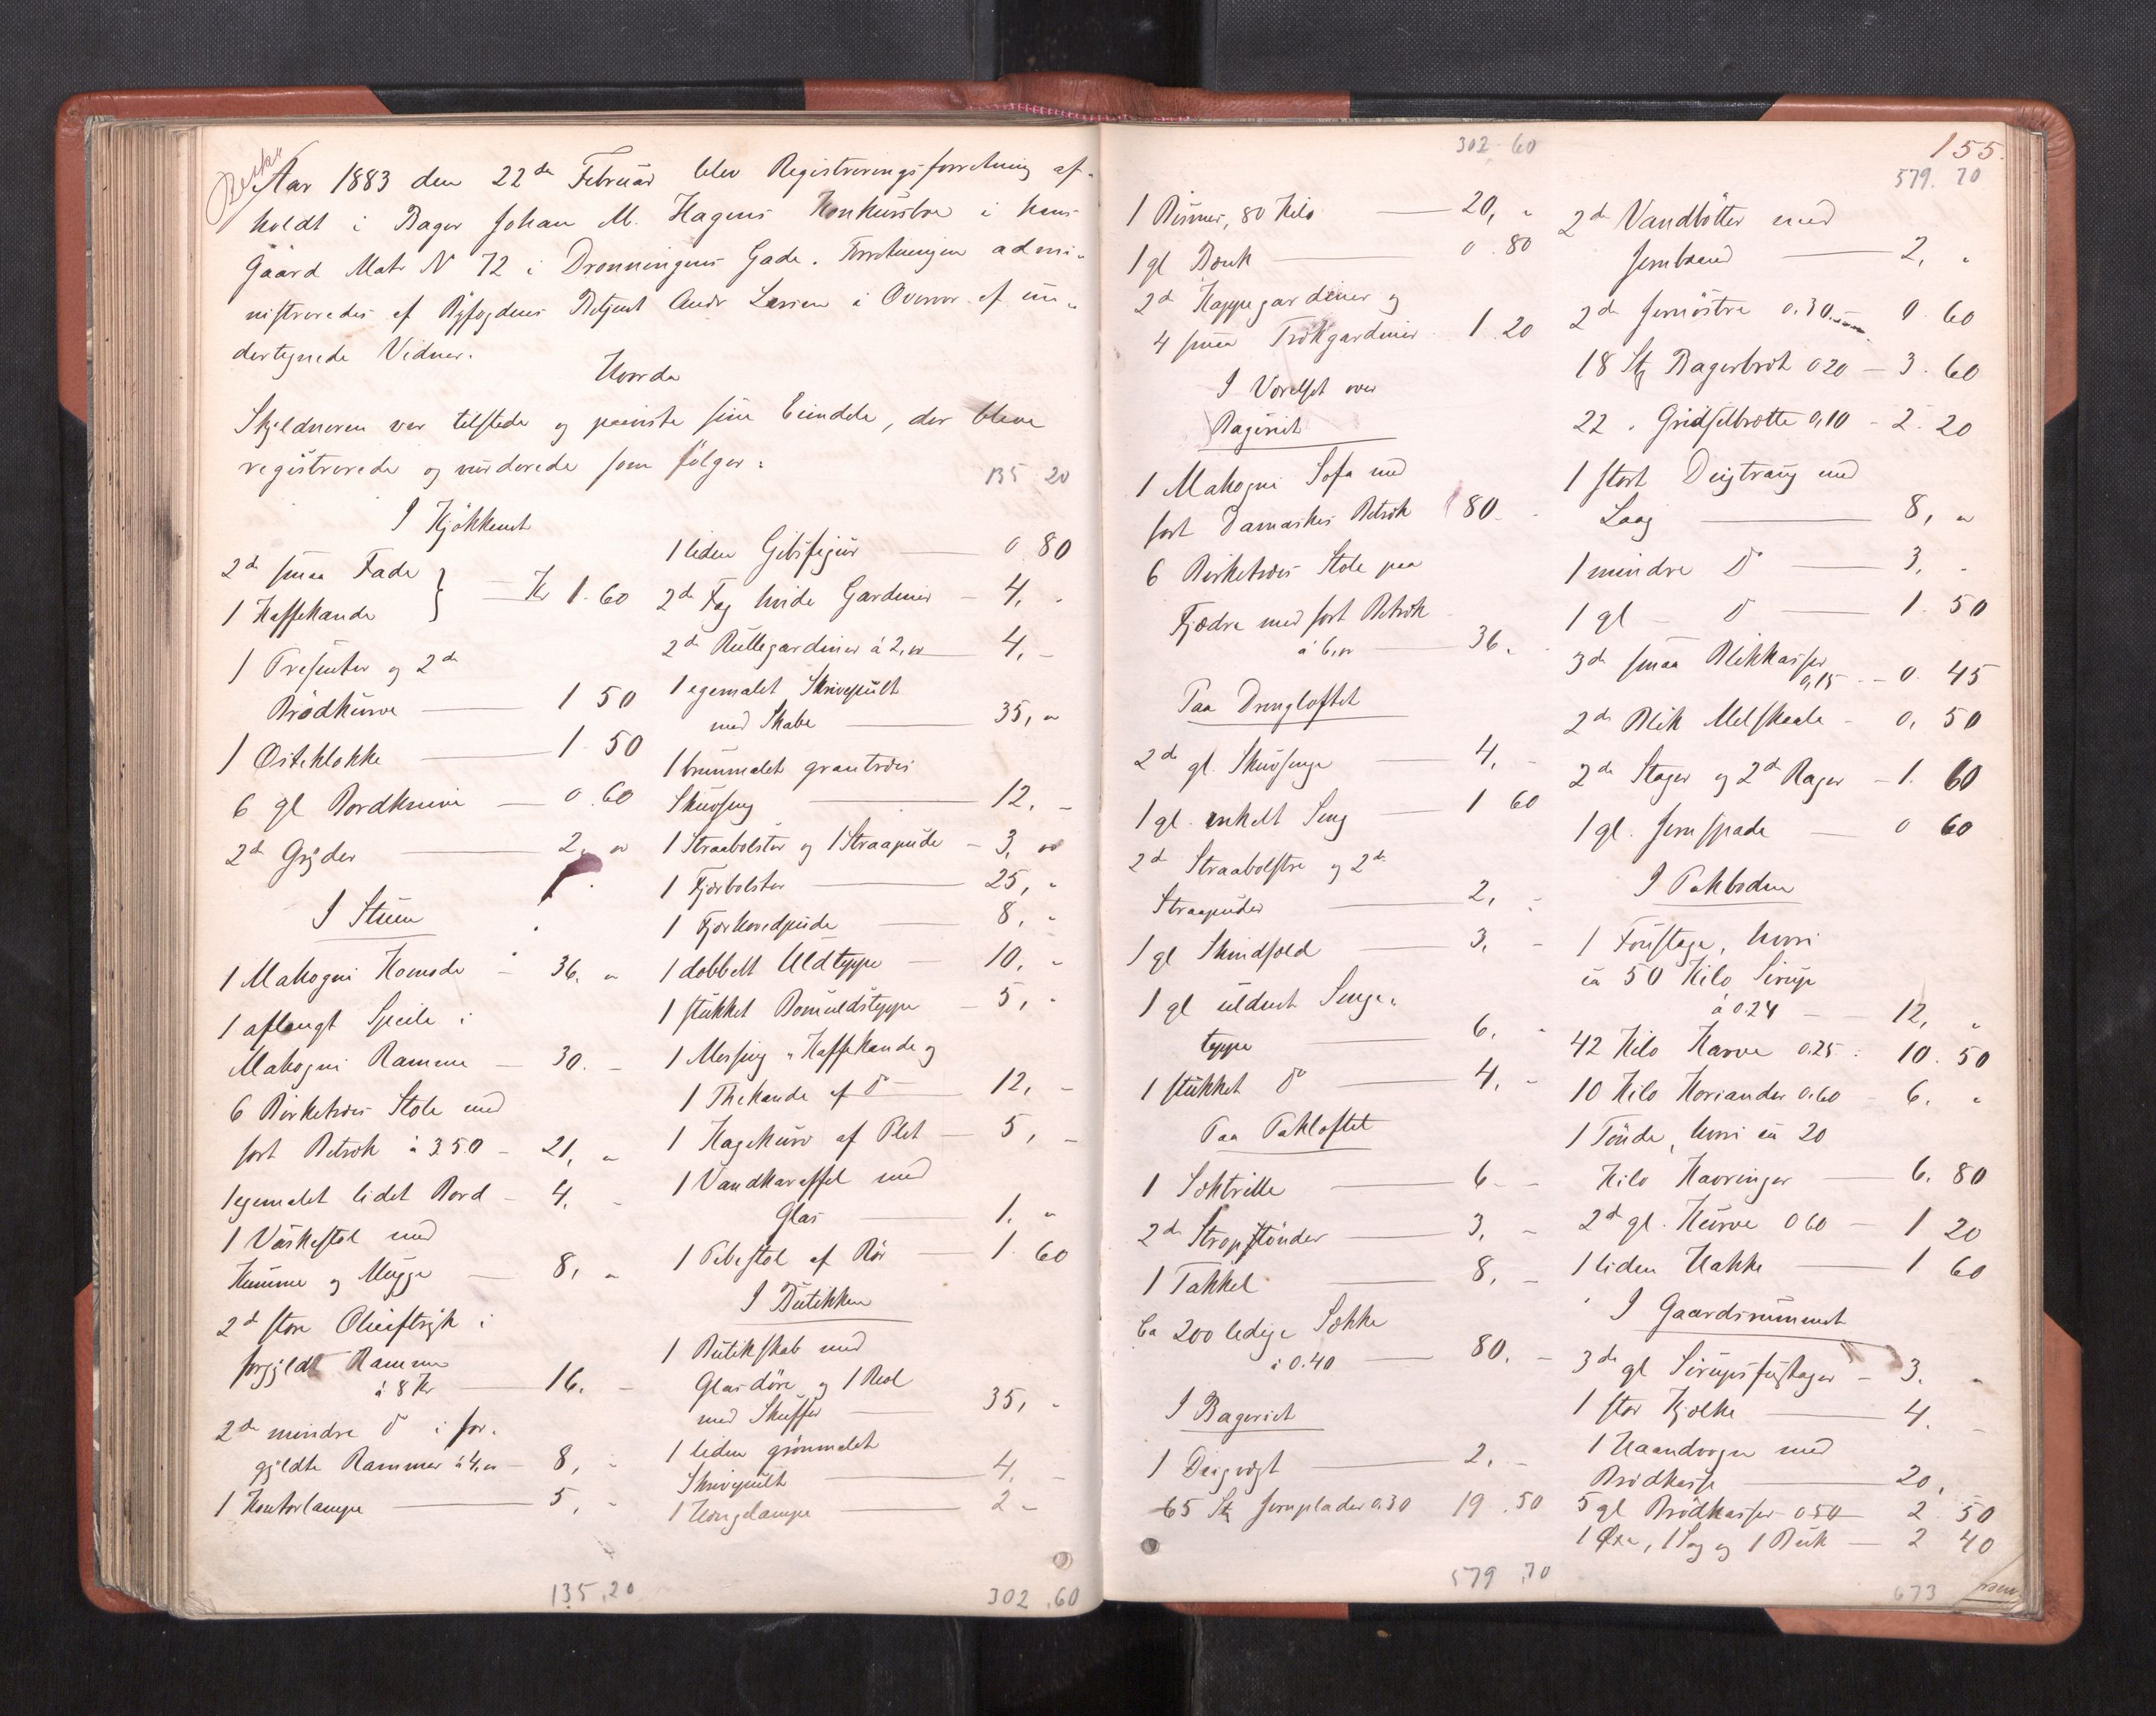 Aar 1883 den 22de Februar blev Registreringsforretning af-
holdt i Bager Johan M. Hagens Konkursbo i hans
Gaard Matr N 72 i Dronningens Gade. Forretningen admi-
nistreredes af Byfogdens Betjent Andr Larsen i Overvær af un-
dertegnede Vidner.
Hvorda
Skyldneren var tilstede og paaviste sine Eiendele, der bleve
registrerede og vurderede som følger:
I Kjøkkenet
2de smaa Fade
1 Kaffekande } Kr 1.60
1 Presenter og 2de
Brødkurve 1 50
1 Osteklokke 1 50
6 gl Bordknive 0.60
2de Gryder 2, "
I Stuen
1 Mahogni Komode 36. "
1 aflangt Speile i
Mahogni Ramme 30. -
6 Birketræs Stole med
sort Betræk à 3.50 - 21, "
1 egemalet lidet Bord - 4. -
1 Vaskestol med
Kumme og Mugge 8, "
2de store Olieistryk i
forgyldt Ramme
à 8 Kr 16. -
2de mindre do i for-
gyldte Rammer à 4,- 8, -
1 Kontorlampe 5, -
135,20
135 20
1 liden Gibsfigur 0 80
2de Fag hvide Gardiner - 4, -
2de Rullegardiner à 2,- 4, -
1 egemalet Skrivepult
med Skabe 35, "
1 brunmalet grantræs
Skuvseng 12, -
1 Straabolster og 1 Straapude - 3, "
1 Fjærbolster 25, -
1 Fjærhovedpude 8, -
1 dobbelt Uldteppe - 10, -
1 stukket Bomuldsteppe - 5, -
1 Messing-Kaffekande og
1 Thekande af do 12, -
1 Kagekurv af Plet - 5, -
1 Vandkaraffel med
Glas 1. "
1 Pibestol af Rør 1. 60
I Butikken
1 Butikskab med
Glasdøre og 1 Reol
med Skuffer 35, -
1 liden grønmalet
Skrivepult 4. -
1 Hængelampe 2 -
302.60
302.60
1 Bismer, 80 Kilo 20, "
1 gl Bænk 0.80
2de Kappegardiner og
4 smaa Trækgardiner 1.20
I Værelset over
Bageriet
1 Mahogni Sofa med
sort Damaskes Betræk 80 -
6 Birketræs Stole paa
Fjædre med sort Betræk
à 6,- 36.
Paa Drengloftet
2de gl. Skuvsenge 4, -
1 gl. enkelt Seng 1 60
2de Straabolstre og 2de
Straapuder 2, -
1 gl Skindfæld 3, -
1 gl uldent Senge-
teppe 6, -
1 stukket do 4, -
Paa Pakloftet
1 Sæktrille 6 -
2de Strøptønder 3, -
1 Takkel 8, -
Ca 200 ledige Sække
à 0.40 80, -
I Bageriet
1 Deigvægt 2, -
65 Stk Jernplader 0.30 19.50
579.70
155.
579.70
2de Vandbøtter med
Jernbaand 2, "
2de Jernøstre 0.30 - 0.60
18 Stk Bagerbræt 0.20 - 3.60
22 " Gridselbrætte 0,10 - 2.20
1 stort Deigtraug med
Laag 8, "
1 mindre do 3, -
1 gl - do 1.50
3de smaa Blikkasser
0,15 - 0.45
2de Blik Melskaale - 0, 50
2de Stager og 2de Rager - 1.60
1 gl. Jernspade 0 60
I Pakboden
1 Foustage, hvori
ca 50 Kilo Sirup
à 0.24 12, "
42 Kilo Karve 0.25 10.50
10 Kilo Koriander 0.60 6, "
1 Tønde, hvori ca 20
Kilo Kavringer 6.80
2de gl. Kurve 0 60 - 1 20
1 liden Hakke 1 60
I Gaardsrummet
3de gl Sirupsfustager - 3. -
1 stor Kjælke 4. -
1 Haandvogn med
Brødkasse 20,
5 gl Brødkasser 0.50 2.50
1 Øxe, 1 Sag og 1 Buk - 2 40
673